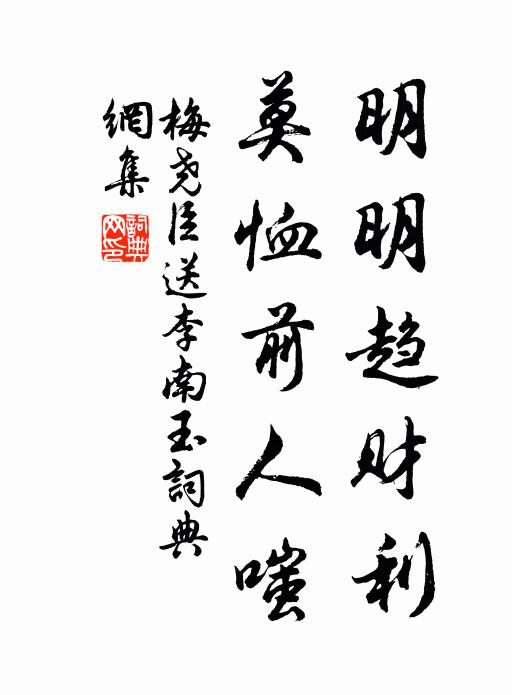 明明趋财利
莫恤前人嗤
梅尧臣送李南玉詞典
網集
詞典网印